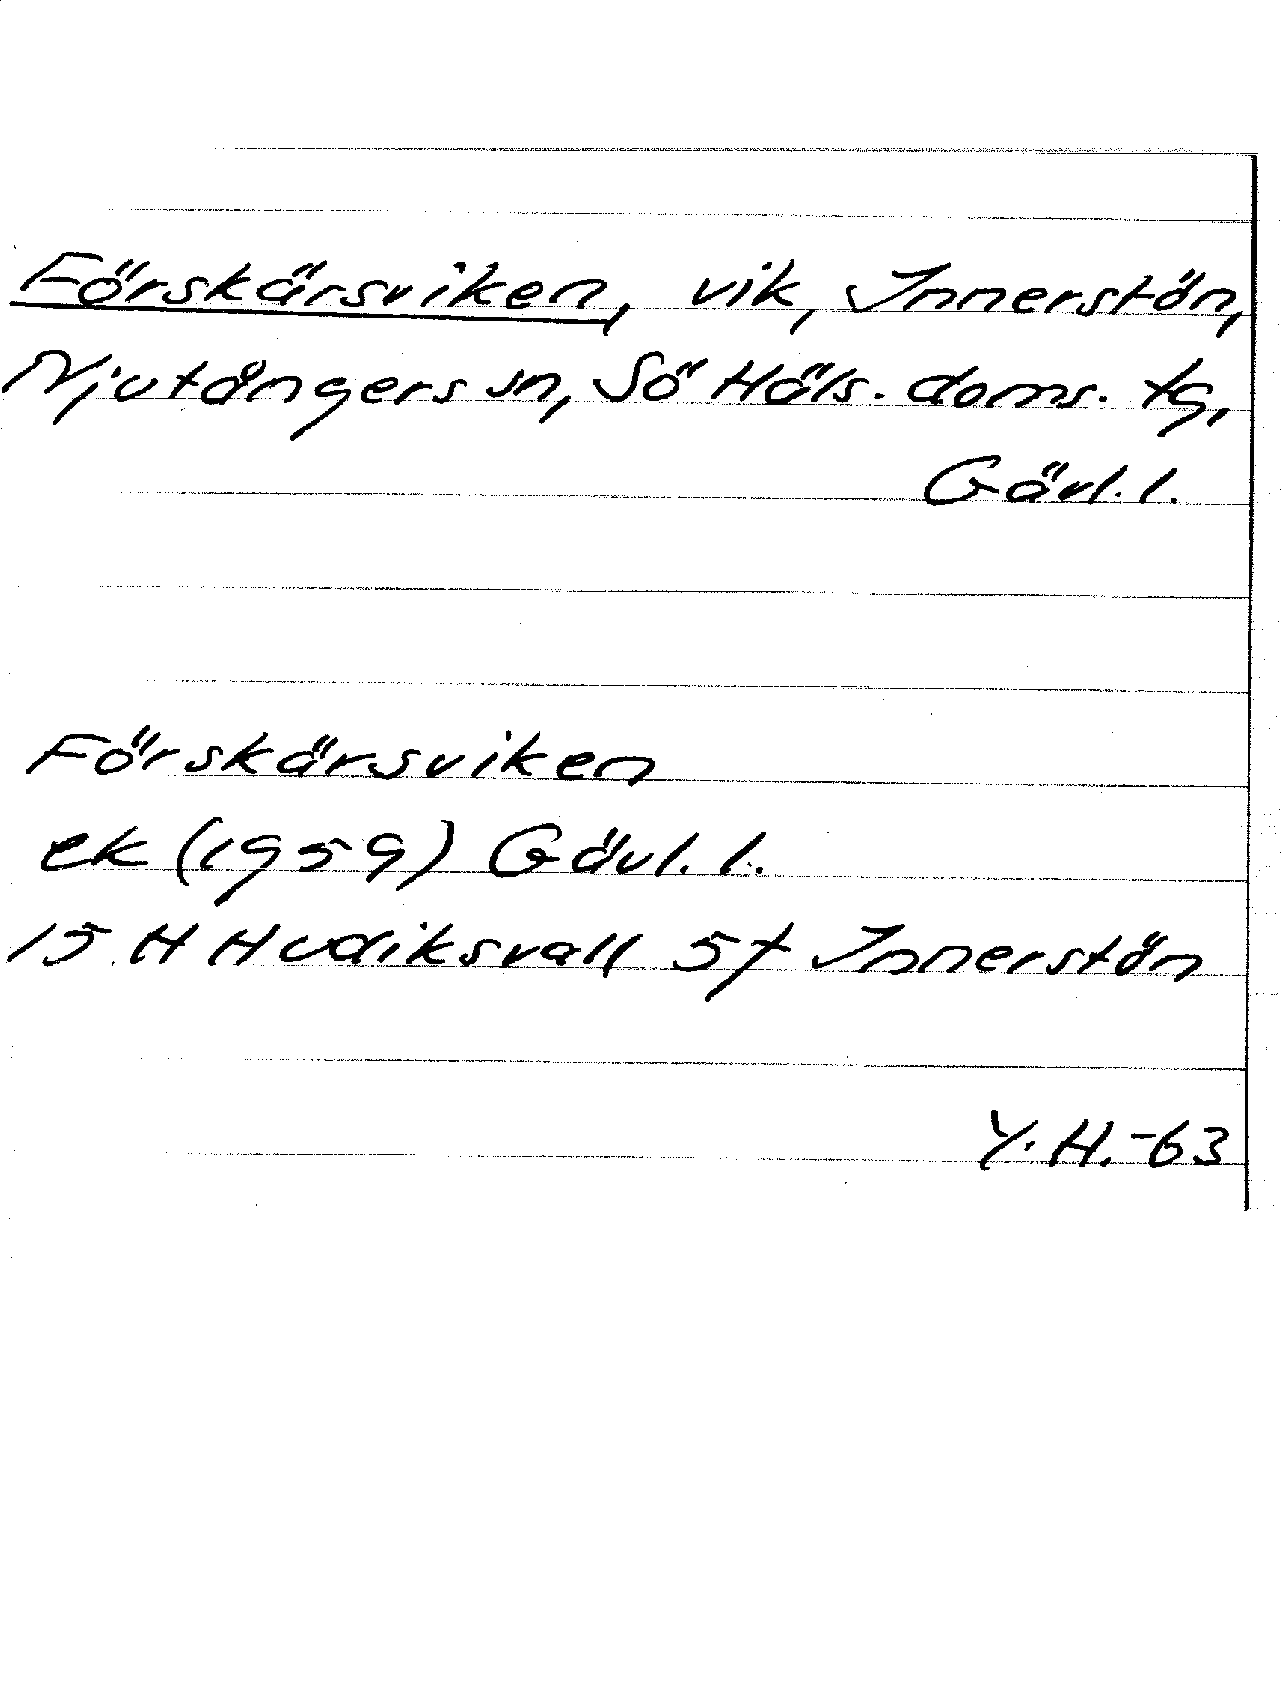 Förskärsviken, vik, Innerstön,
Njutångers sn, Sö Häls. doms. tg,
Gävl. l.
Förskärsviken
ek (1959) Gävl. l.
15 H Hudiksvall 5f Innerstön
Y. H. -63